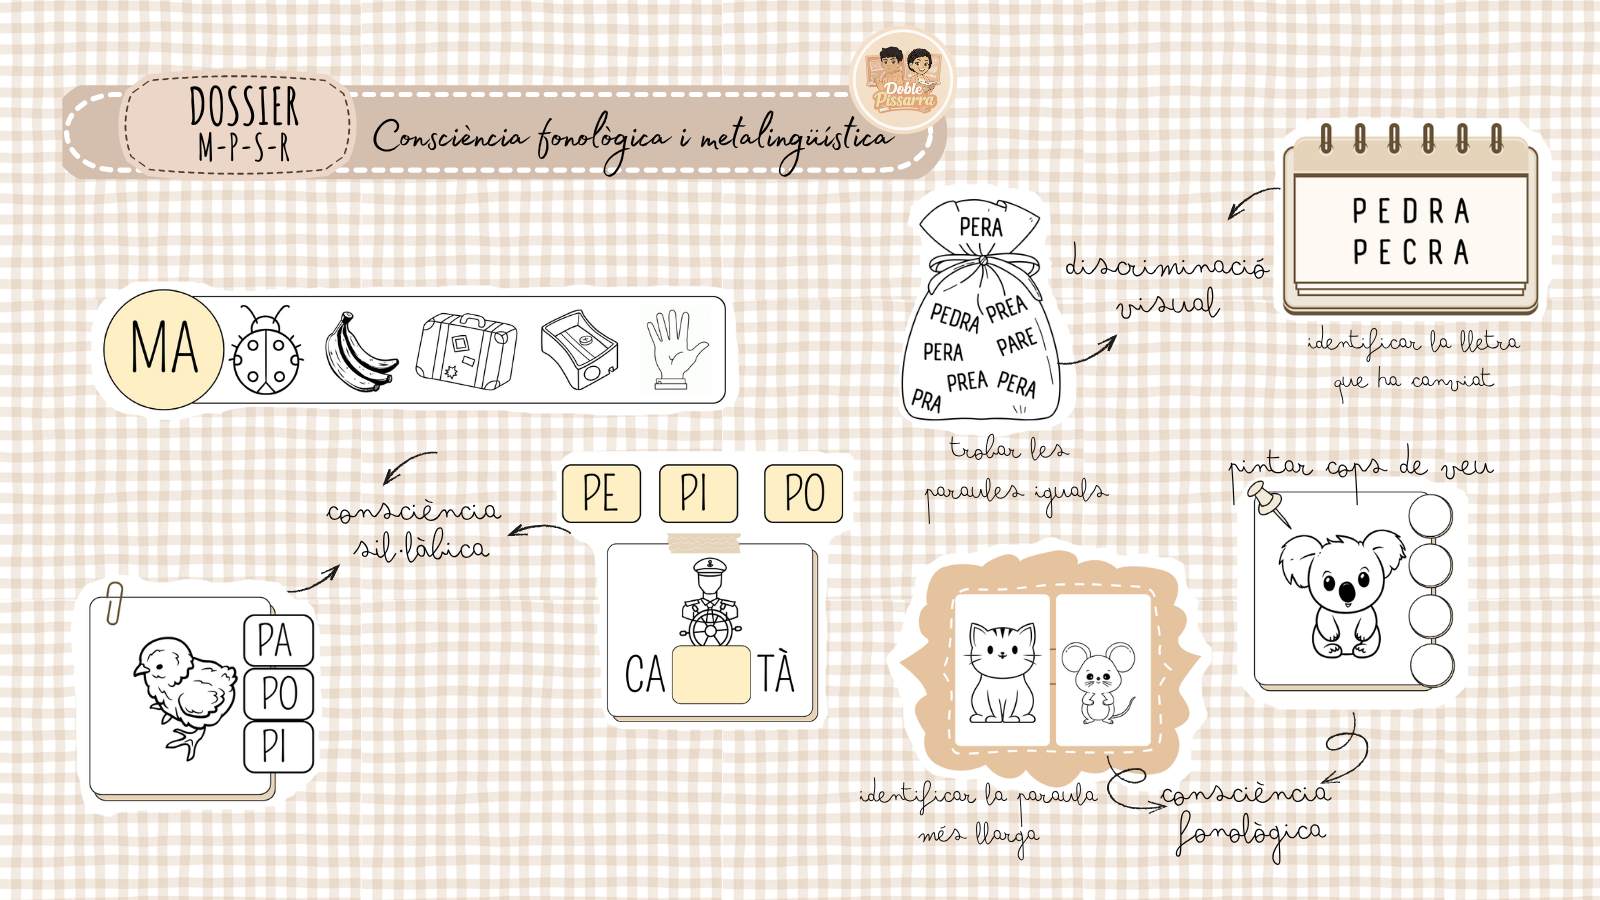 DOSSIER
M-P-S-R
Consciència fonològica i metalingüística
Doble
Pissarra
MA
consciència
sil·làbica
PA
PO
PI
PE PI PO
CA TÀ
PERA
PEDRA PREA
PERA PARE
PREA PERA
PRA
trobar les
paraules iguals
discriminació
visual
PEDRA
PECRA
identificar la lletra
que ha canviat
pintar cops de veu
identificar la paraula
més llarga
consciència
fonològica